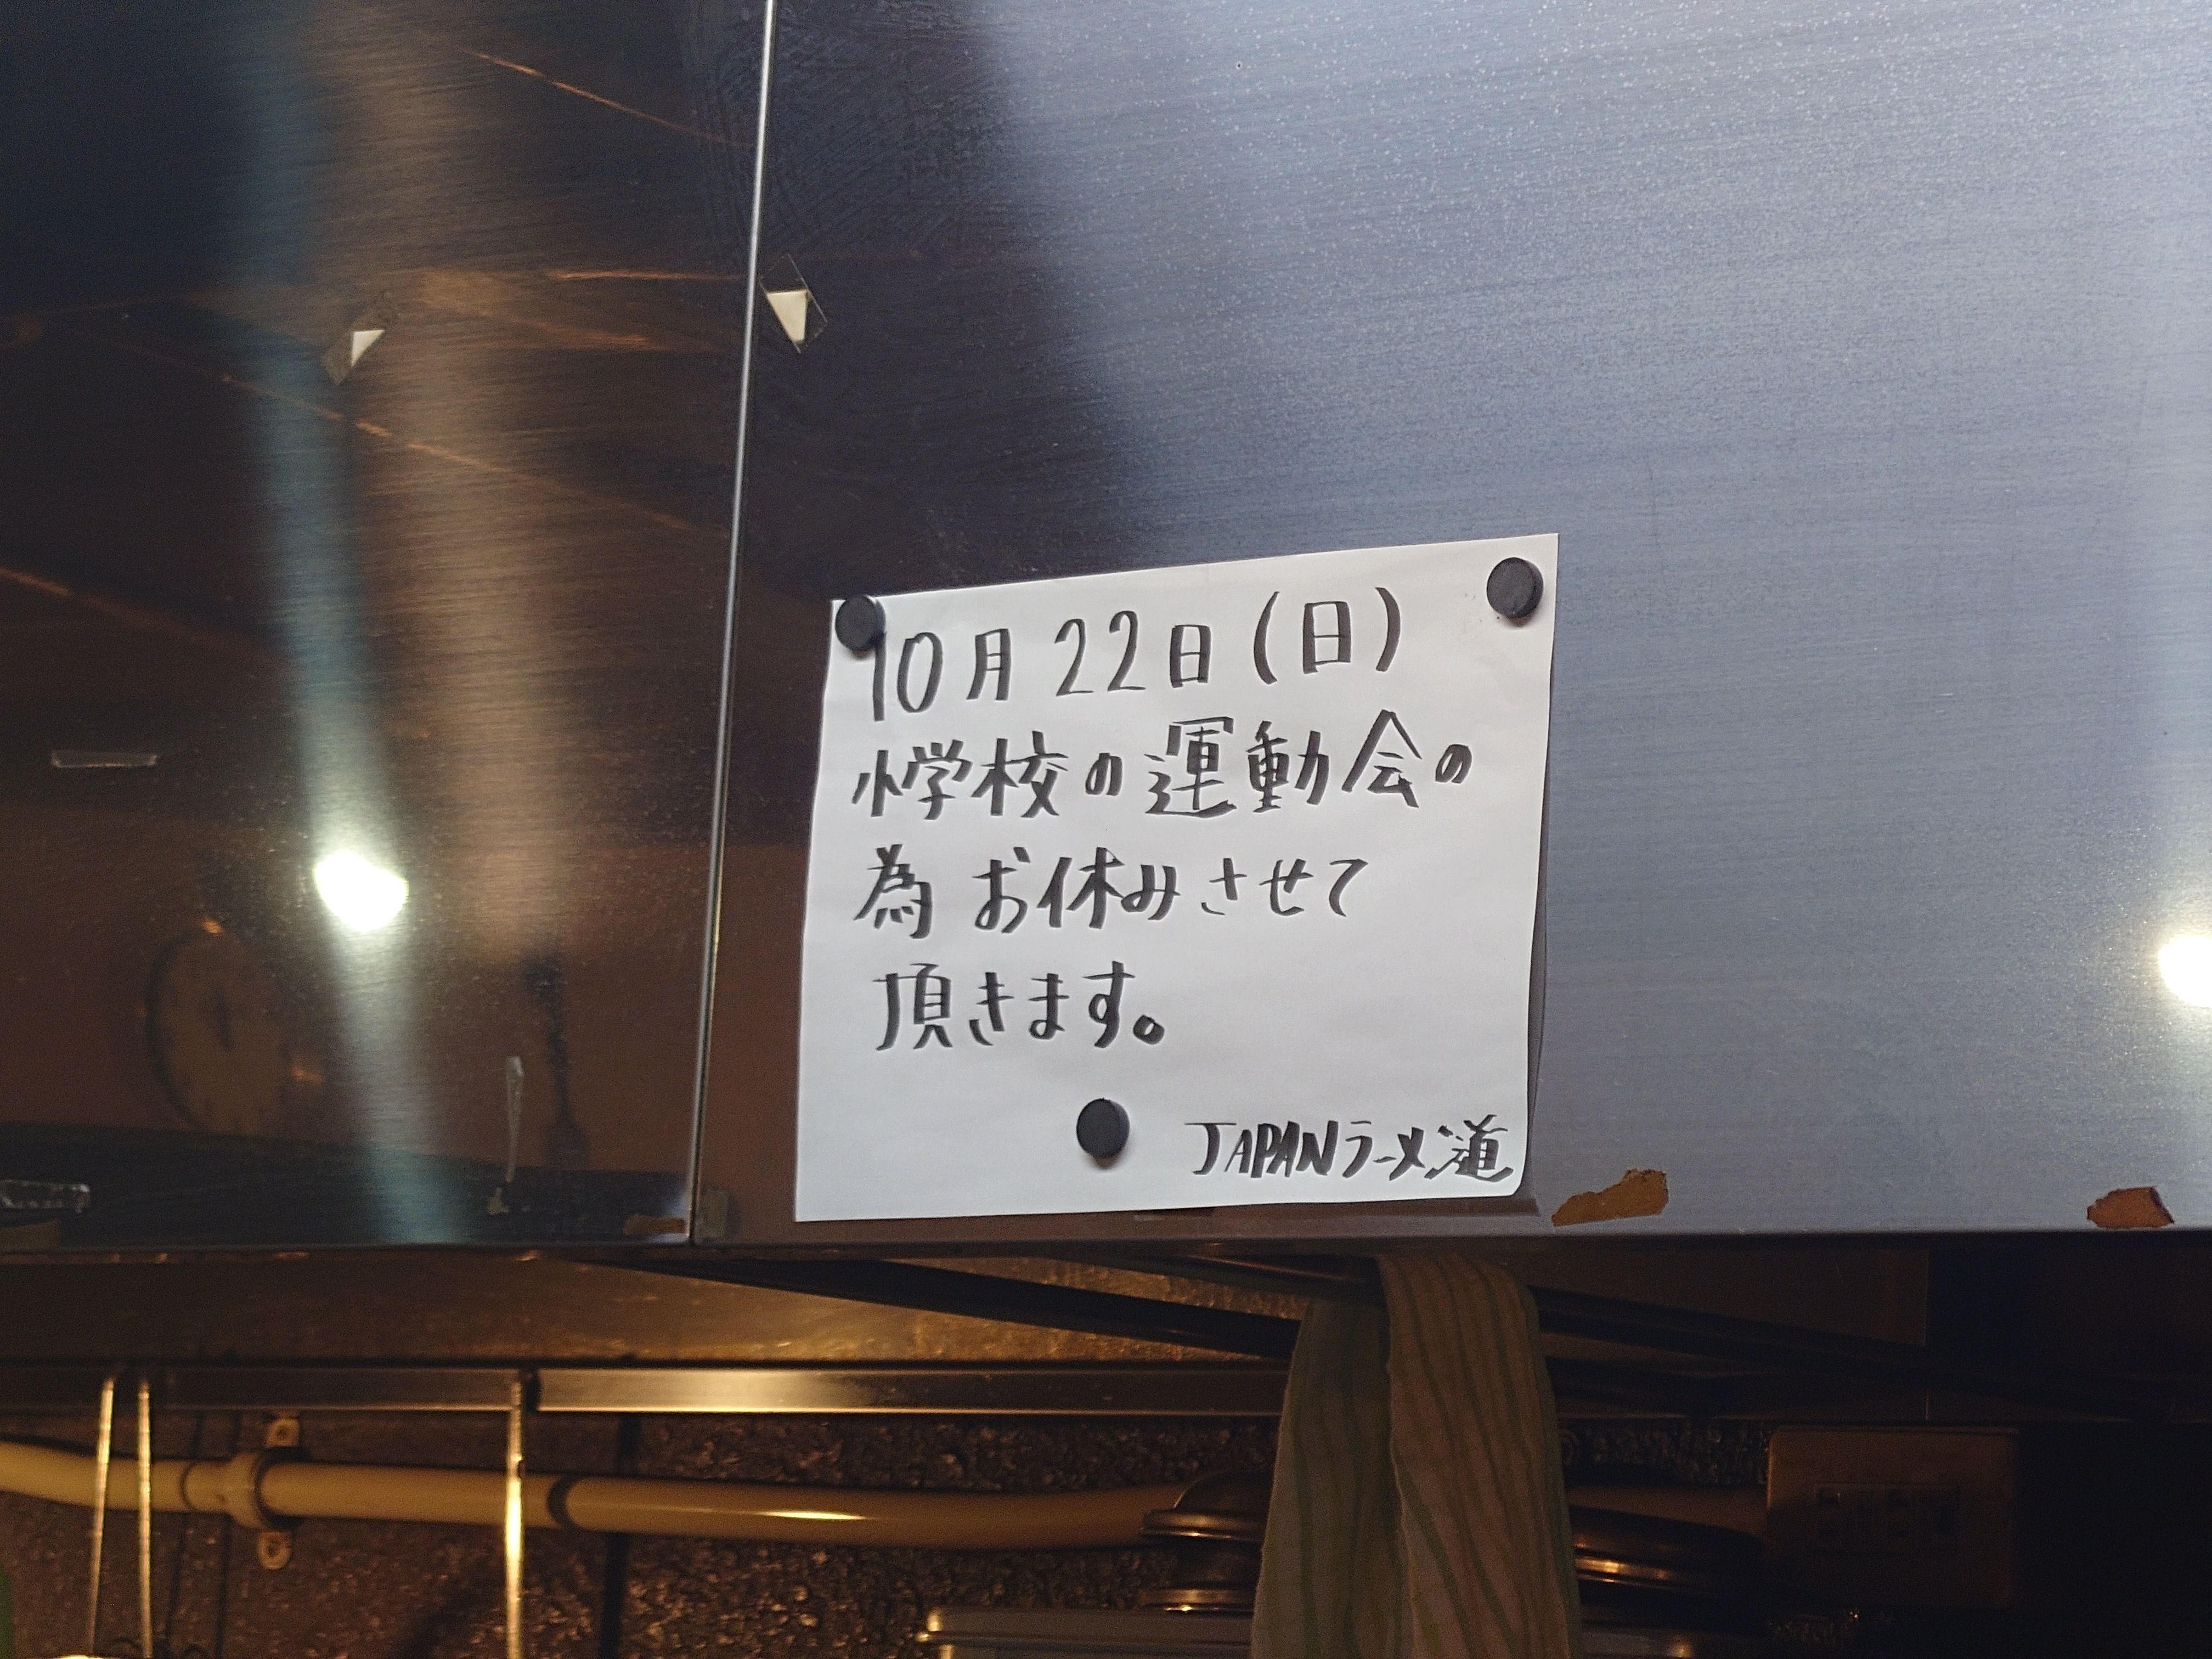 10月22日(日)
小学校の運動会の
為お休みさせて
頂きます。
JAPANラーメン道